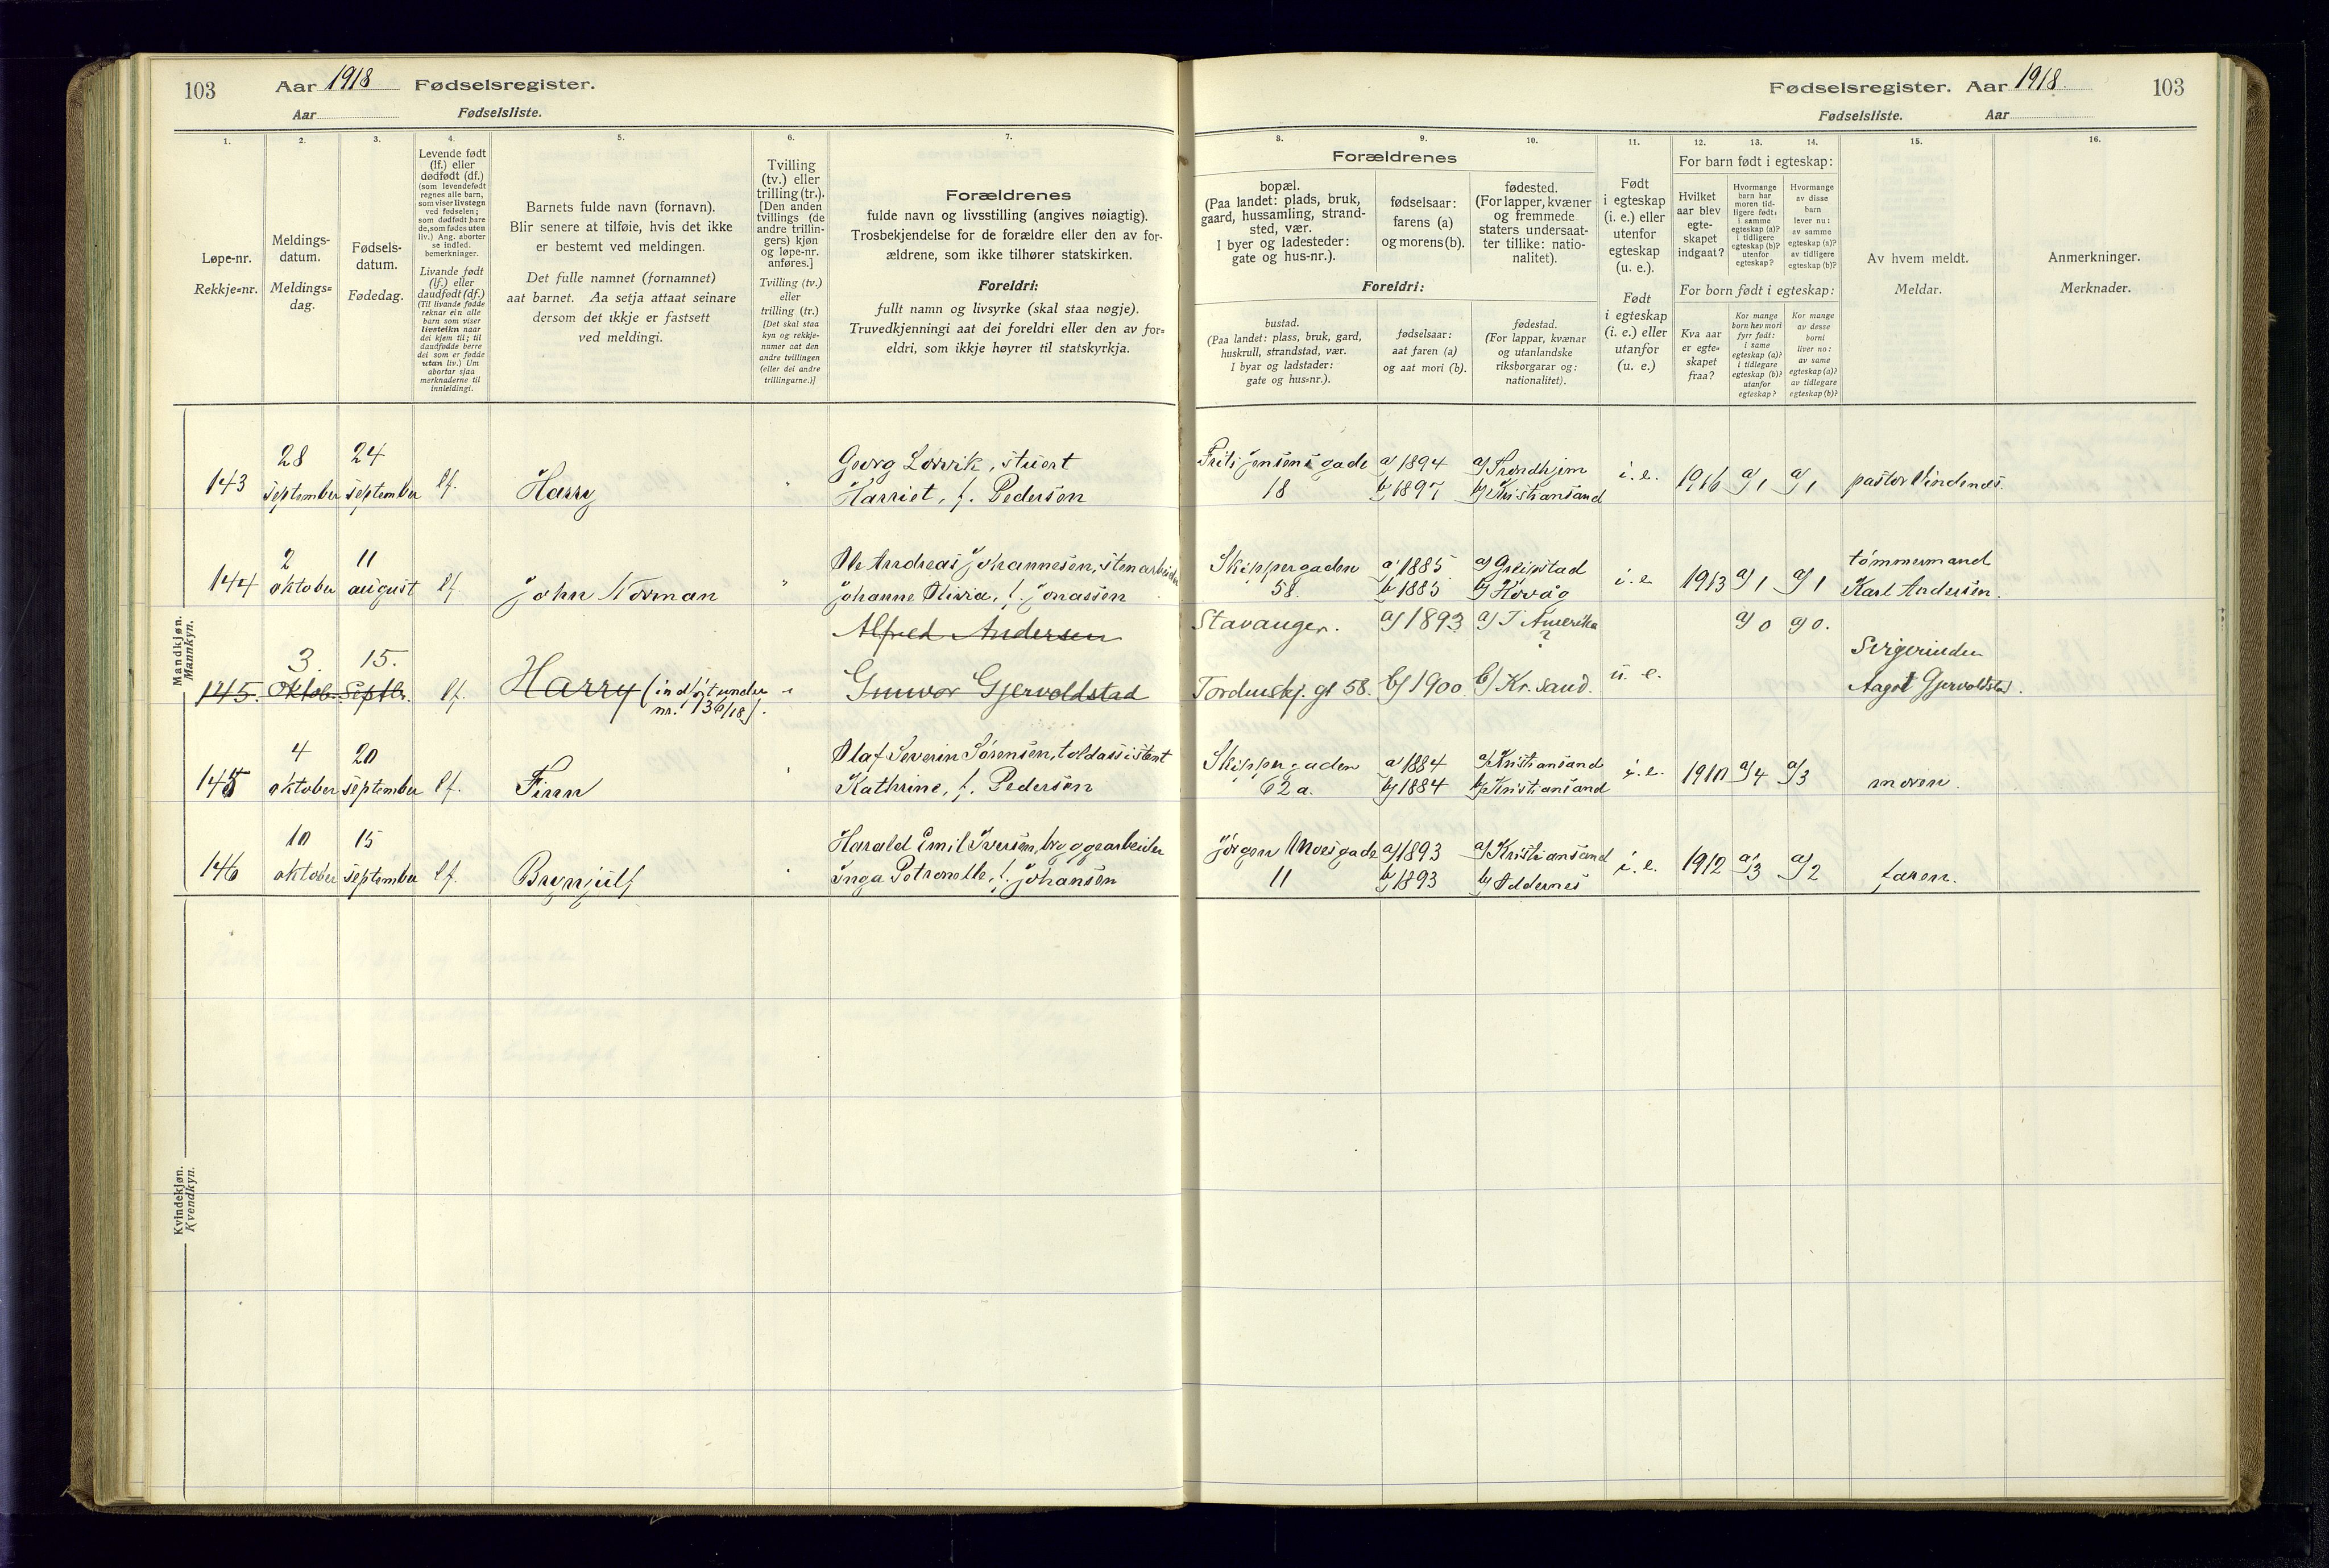 103
Aar 1918 Fødselsregister.
Aar Fødselsliste.
1.
2.
3.
4.
5.
6.
7.
Løpe-nr.
Rekkje-nr.
Meldings-
datum.
Meldings-
dag.
Fødsels-
datum.
Fødedag.
Levende født
(lf.) eller
dødfødt (df.)
(som levendefødt
regnes alle barn,
som viser livstegn
ved fødselen;
som dødfødt bare
de, som fødes uten
liv.) Ang. aborter
se indled.
bemerkninger.
Livande født
(lf.) eller
daudfødt (df.)
(Til livande fødde
reknar ein alle
barn som viser
livsteikn naar
dei kjem til; til
daudfødde berre
dei som er fødde
utan liv.) Um
abortar sjaa
merknaderne til
innleidingi.
Barnets fulde navn (fornavn).
Blir senere at tilføie, hvis det ikke
er bestemt ved meldingen.
Det fulle namnet (fornamnet)
aat barnet. Aa setja attaat seinare
dersom det ikkje er fastsett
ved meldingi.
Tvilling
(tv.) eller
trilling (tr.).
[Den anden
tvillings (de
andre trillin-
gers) kjøn
og løpe-nr.
anføres.]
Tvilling (tv.)
eller
trilling (tr.)
[Det skal staa
kyn og rekkje-
numer aat den
andre tvillingen
(eller dei andre
trillingarne.)]
Forældrenes
fulde navn og livsstilling (angives nøiagtig).
Trosbekjendelse for de forældre eller den av for-
ældrene, som ikke tilhører statskirken.
Foreldri:
fullt namn og livsyrke (skal staa nøgje).
Truvedkjenningi aat dei foreldri eller den av for-
eldri, som ikkje høyrer til statskyrkja.
Mandkjøn.
Mannkyn.
28 24
143 september september lf. Harry " Georg Lorvik, stuert
Harriet, f. Pedersen
2 11
144 oktober august lf. John Norman " Ole Andreas Johannesen, stenarbeider
Johanne Olivia, f. Jonassen
Alfred Andersen
3. 15.
145. Oktob. Septbr. lf. Harry (indført under
nr. 136/18). " Gunvor Gjervoldstad
4 20
145 oktober september lf. Finn Olaf Severin Sørensen, toldassistent
Kathrine, f. Pedersen
10 15
146 oktober september lf. Brynjulf Harald Emil Iversen, bryggearbeider
Inga Petronelle, f. Johansen
Kvindekjøn.
Kvendkyn.
Fødselsregister. Aar 1918. 103
Fødselsliste. Aar
8.
9.
10.
11.
12.
13.
14.
15.
16.
Forældrenes
bopæl.
(Paa landet: plads, bruk,
gaard, hussamling, strand-
sted, vær.
I byer og ladesteder:
gate og hus-nr.).
fødselsaar:
farens (a)
og morens (b).
fødested.
(For lapper, kvæner
og fremmede
staters undersaat-
ter tillike: natio-
nalitet).
Foreldri:
bustad.
(Paa landet: plass, bruk, gard,
huskrull, strandstad, vær.
I byar og ladstader:
gate og hus-nr.).
fødselsaar:
aat faren (a)
og aat mori (b).
fødestad.
(For lappar, kvænar
og utanlandske
riksborgarar og:
nationalitet).
Født
i egteskap
(i. e.) eller
utenfor
egteskap
(u. e.).
Født
i egteskap
(i. e.) eller
utanfor
(u. e.)
For barn født i egteskap:
Hvilket
aar blev
egte-
skapet
indgaat?
Hvormange
barn har
moren tid-
ligere født:
i samme
egteskap (a)?
i tidligere
egteskap (b)?
utenfor
egteskap?
Hvormange
av disse
barn
lever nu:
av samme
egteskap (a)?
av tidligere
egteskap (b)?
For born født i egteskap:
Kva aar
er egte-
skapet
fraa?
Kor mange
born hev mori
fyrr født:
i same
egteskap (a)?
i tidlegare
egteskap (b)?
utanfor
egteskap?
Kor mange
av desse
borni
liver no:
av same
egteskap (a)?
av tidlegare
egteskap (b)?
Av hvem meldt.
Meldar.
Anmerkninger.
Merknader.
Frits Jensens gade a) 1894 a) Trondhjem
18 b) 1897 b) Kristiansand i. e. 1916 a) 1 a) 1 pastor Vindenes.
Skippergaden a) 1885 a) Greipstad
58. b) 1885 b) Høvåg i. e. 1913 a) 1 a) 1 tømmermand
Karl Andersen.
Stavanger. a) 1893 a) I Amerika a) 0 a) 0.
?
Tordenskj. gt 58. b) 1900 b) Kr. Sand. u. e.
Aagot Gjervoldstad.
Skippergaden a) 1884 a) Kristiansand
62 a. b) 1884 b) Kristiansand i. e. 1910 a) 4 a) 3 moren.
Jørgen Moes gade a) 1893 a) Kristiansand
11 b) 1893 b) Oddernes i. e. 1912 a) 3 a) 2 faren.